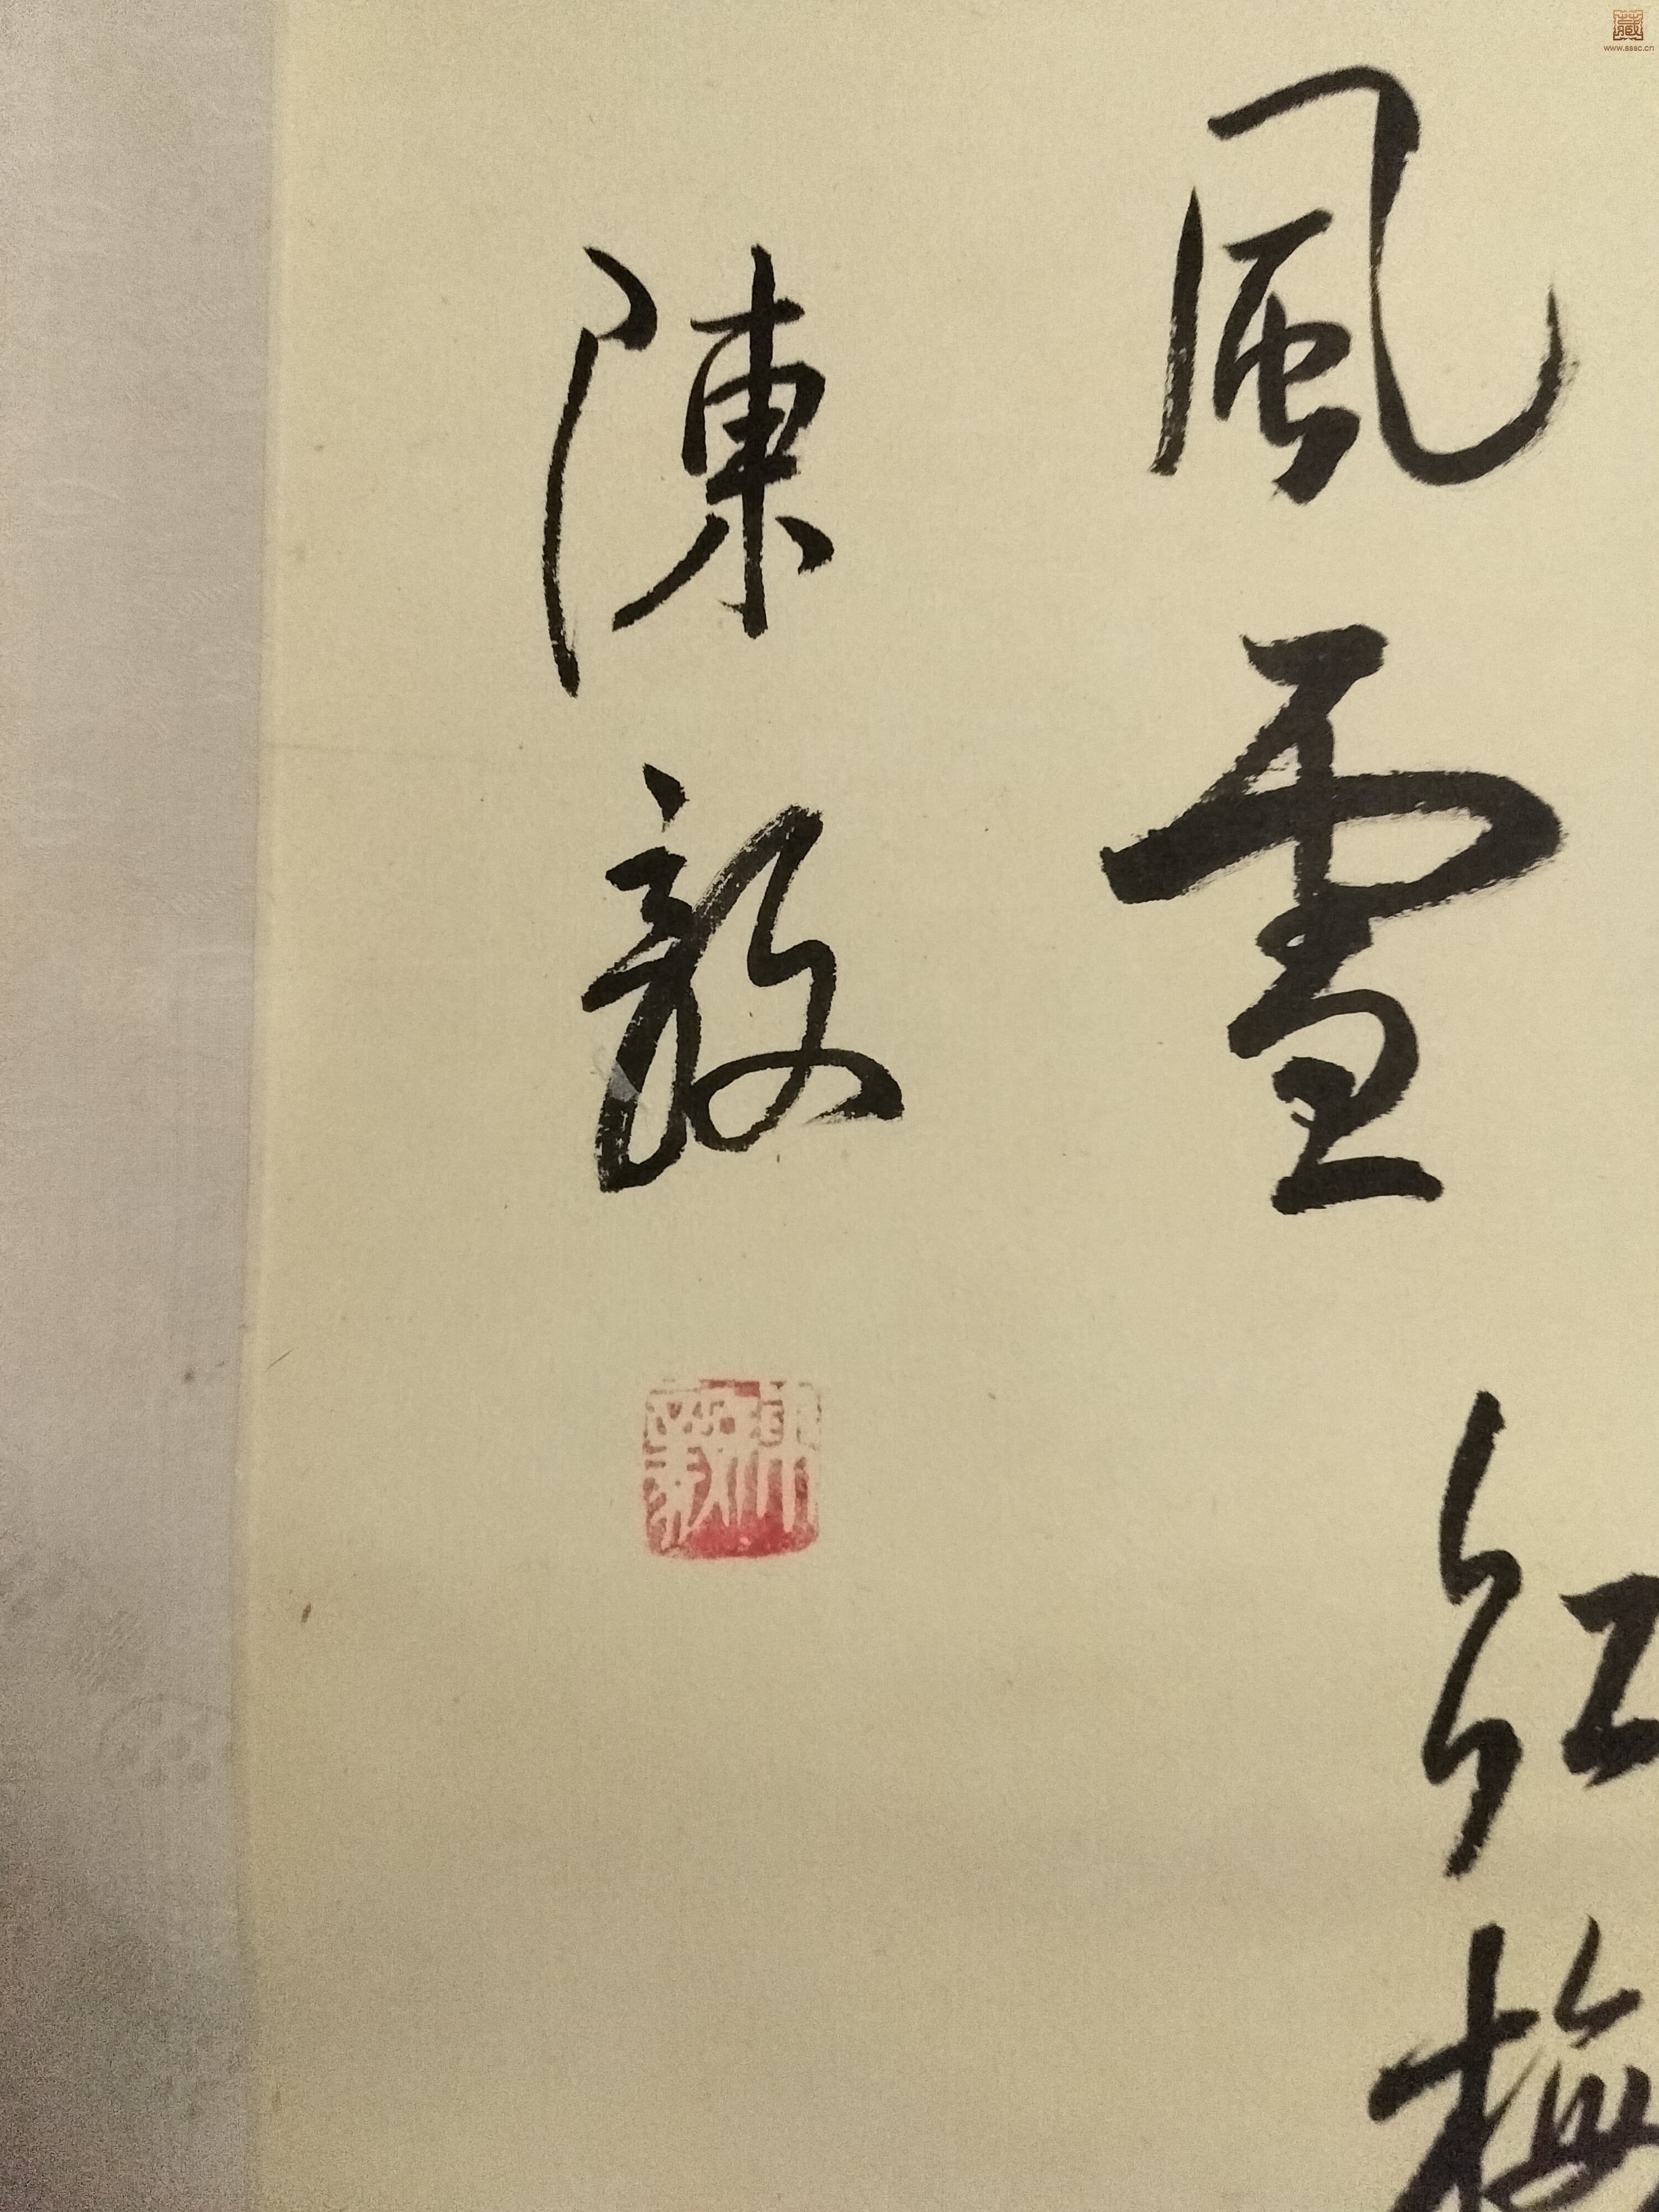 風雪紅梅
陳毅
藏
www.sssc.cn